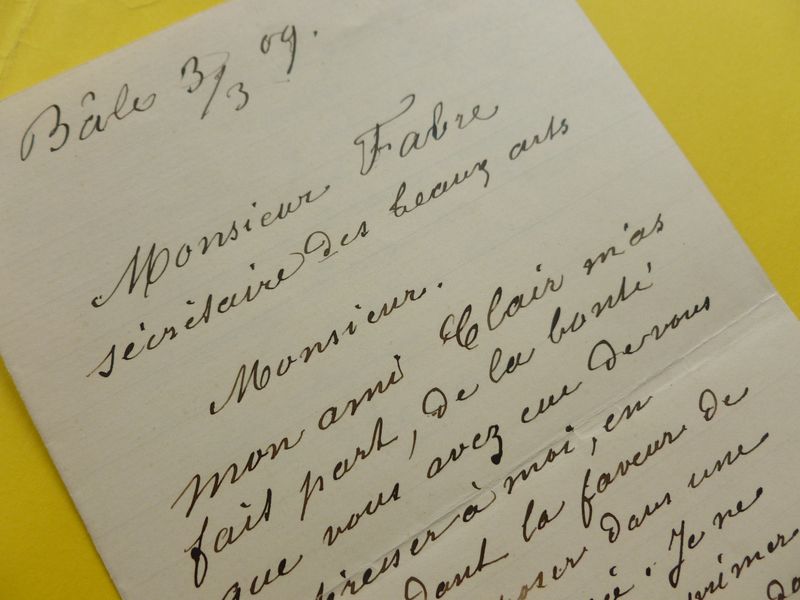 Bâle 3/3 09.
Monsieur Fabre
sécrétaire des beaux arts
Monsieur.
Mon ami Clair m'as
fait part, de la bonté
que vous avez eue de vous
à moi, en
dant la faveur de
oser dans une
é. Je ne
rimer